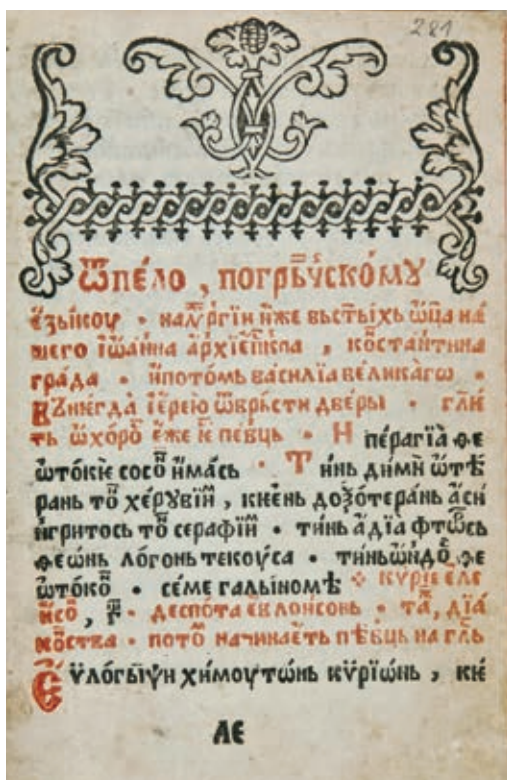 281
Ѿпе́ло , погрⷱ҇ьскомꙋ
є҆зы́коу • налꙋ́ргїи и҆́же въст҃ы́хъ ѡ҆ц҃а на
шего їѡа́нна а҆рхїєпⷭ҇кпа , кѡⷭ҇таньти́на
гра́да • и҆пото́мь васи́лїа вели́каго •
Вънегда̀ і҆ере́ю ѿврьсти двє́ры • гл҃и
ть ѡ҆хоро́ є҆́же є҆ пѣвць • И пера́гїа̀ ѳе
ѡ҆то́кїе сосо́ н҆има́сь • Ти́нь ди́мїи ѡ҆тѣ
рань то̏ хе́рꙋвїи҆м , кие́нь доѯо́тера́нь а҆си
н҆гритось то̏ серафїи҆м • ти́нь а҆дїа̀ фто̑сь
ѳеѡ́нь ло́гонь текоу́са • ти́ньѡ́ндо̏ ѳе
ѡ҆токо̏ • се́ме гальі́номѣ кѵ́рїе є҆ле
и҆со̏ , г҃ • деспо́та є҆влои́сонь • та̏ , дїа
ко́ства • пото̏ начина́еть пѣ́вць на гл҃ь
Єѵ̈ло́гыѱи хи́моутѡнь кѵ́рїѡнь , ки́
ле